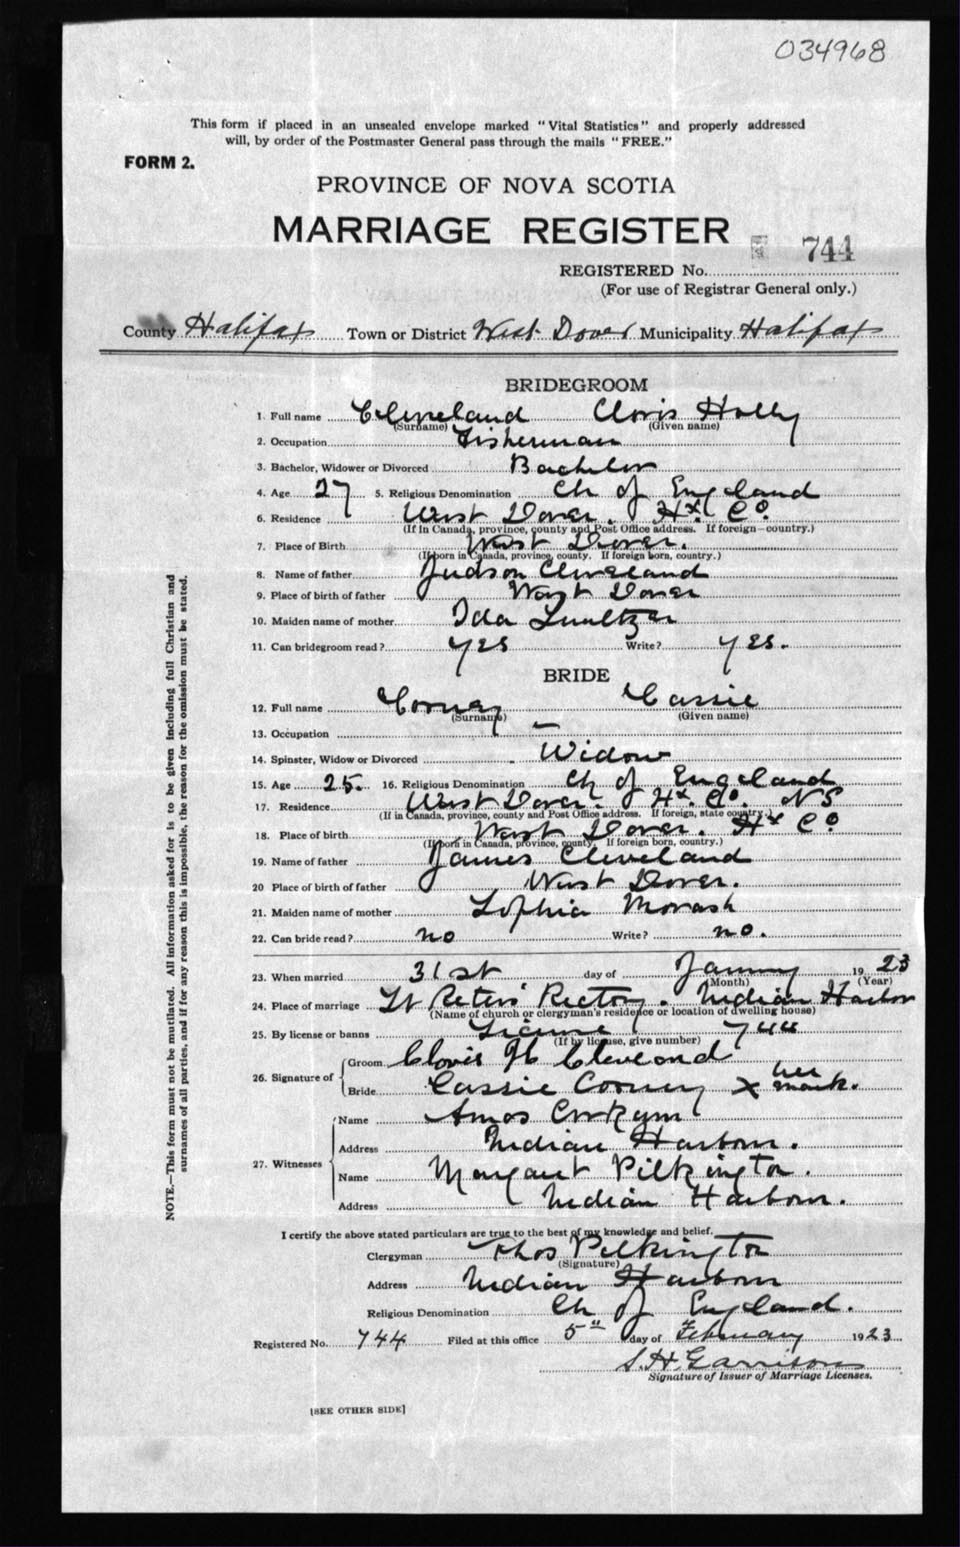 034968
This form if placed in an unsealed envelope marked "Vital Statistics" and properly addressed
will, by order of the Postmaster General pass through the mails "FREE."
FORM 2.
PROVINCE OF NOVA SCOTIA
MARRIAGE REGISTER
744
REGISTERED No.
(For use of Registrar General only.)
County Halifax Town or District West Dover Municipality Halifax
BRIDEGROOM
1. Full name Cleveland Cloris Holly
(Surname) (Given name)
2. Occupation Fisherman
3. Bachelor, Widower or Divorced Bachelor
4. Age 27 5. Religious Denomination Ch of England
6. Residence West Dover. Hx Co.
(If in Canada, province, county and Post Office address. If foreign—country.)
7. Place of Birth West Dover.
(If born in Canada, province, county. If foreign born, country.)
8. Name of father Judson Cleveland
9. Place of birth of father West Dover
10. Maiden name of mother Ida
11. Can bridegroom read? yes Write? yes.
BRIDE
12. Full name Cooney Cassie
(Surname) (Given name)
13. Occupation —
14. Spinster, Widow or Divorced Widow
15. Age 25. 16. Religious Denomination Ch of England
17. Residence West Dover. Hx. Co. N S
(If in Canada, province, county and Post Office address. If foreign, state country.)
18. Place of birth West Dover. Hx Co
(If born in Canada, province, county. If foreign born, country.)
19. Name of father James Cleveland
20 Place of birth of father West Dover.
21. Maiden name of mother Sophia Morash
22. Can bride read? no Write? no.
23. When married 31st day of January 19 23
(Month) (Year)
24. Place of marriage St Peters' Rectory. Indian Harbor
(Name of church or clergyman's residence or location of dwelling house)
25. By license or banns License 744
(If by license, give number)
26. Signature of Groom Clovis H Cleveland
Bride Cassie Cooney X her mark.
27. Witnesses Name Amos
Address Indian Harbour.
Name Margaret Pilkington.
Address Indian Harbour.
I certify the above stated particulars are true to the best of my knowledge and belief.
Clergyman Thos Pilkington
(Signature)
Address Indian Harbour
Religious Denomination Ch of England.
Registered No. 744 Filed at this office 5" day of February 1923
S. H. Garrison
Signature of Issuer of Marriage Licenses.
[SEE OTHER SIDE]
NOTE.—This form must not be mutilated. All information asked for is to be given including full Christian and
surnames of all parties, and if for any reason this is impossible, the reason for the omission must be stated.